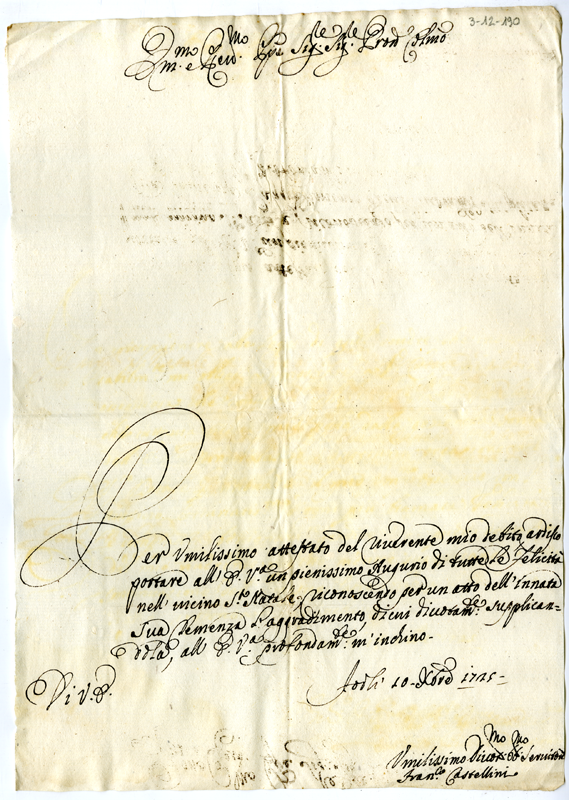 3-12-190
Emo e Revmo Sigre Sigre Pron Colmo
Per Umilissimo attestato del riverente mio debito ardisco
portare all' E. Va un pienissimo Augurio di tutte le Felicità
nell' vicino Sto Natale, riconoscendo per un atto dell' Innata
Sua Clemenza l'aggradimento di cui divotamte supplican=
dola, all' E. Va profondamte m'inchino.
Di V. E.
10 Xbre 1725
Umilissimo Divotmo Obmo Servitore
Franco Castellini